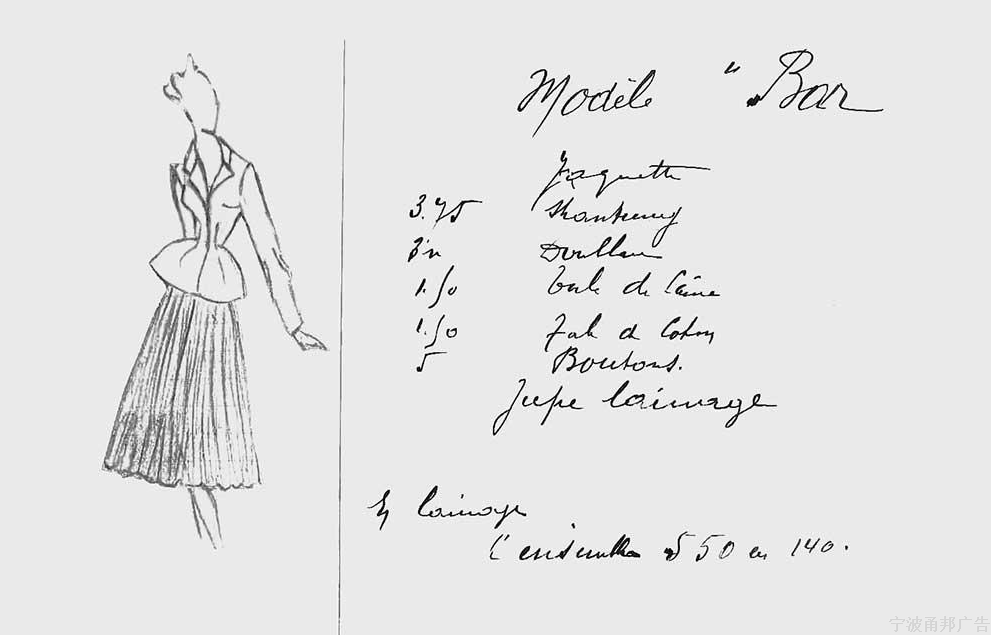 Modèle "Bar
Jaquette
3.75 Shantung
Doublure
1.50 Toile de laine
1.50 Toile de Coton
5 Boutons.
Jupe lainage
En lainage
L'ensemble 5 50 en 140.
宁波甬邦广告